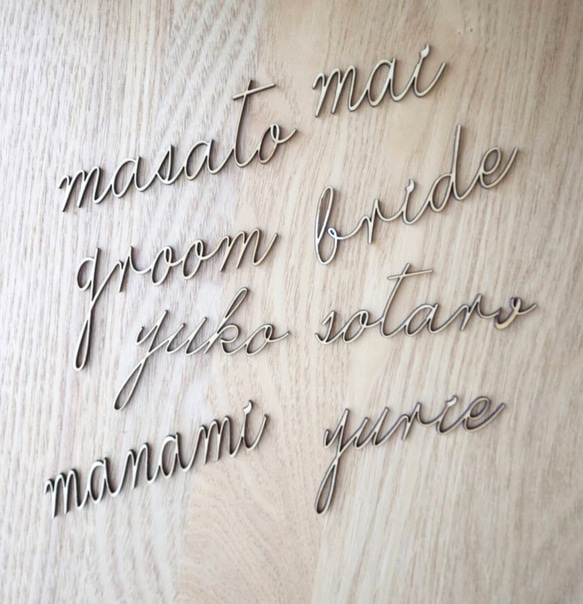 masato mai
groom bride
yuko sotaro
manami yurie